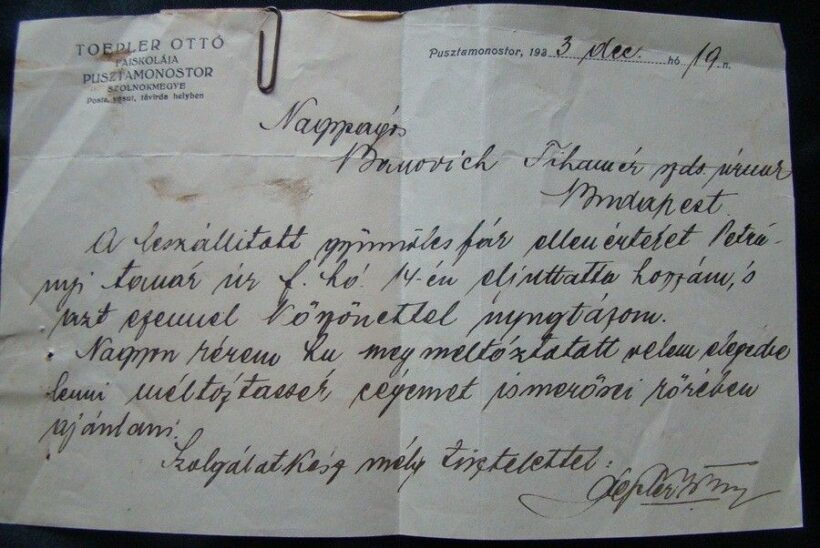 TOEPLER OTTÓ
FAISKOLÁJA
PUSZTAMONOSTOR
SZOLNOKMEGYE
Posta, vasut, távirda helyben
Pusztamonostor, 193 3 dec. hó 19. n.
Nagyságos
Banovich Tihamér úrnak
Budapest.
A leszállitott gyümölcsfák ellenértékét Petrá-
nyi tanár úr f. hó 14-én eljuttatta hozzám, s
azt ezennel köszönettel nyugtázom.
Nagyon kérem ha meg méltóztatott velem elégedve
lenni méltóztassék cégemet ismerősei körében
ajánlani.
Szolgálatkész mély tisztelettel: